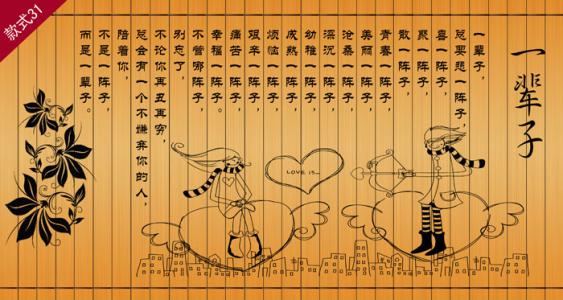 款式31
一辈子
一辈子，
总要悲一阵子，
喜一阵子，
聚一阵子，
散一阵子，
青春一阵子，
美丽一阵子，
沧桑一阵子，
深沉一阵子，
幼稚一阵子，
成熟一阵子，
烦恼一阵子，
艰辛一阵子，
痛苦一阵子，
幸福一阵子。
不管哪阵子，
别忘了，
不论你再丑再穷，
总会有一个不嫌弃你的人，
陪着你，
不是一阵子，
而是一辈子。
LOVE IS...